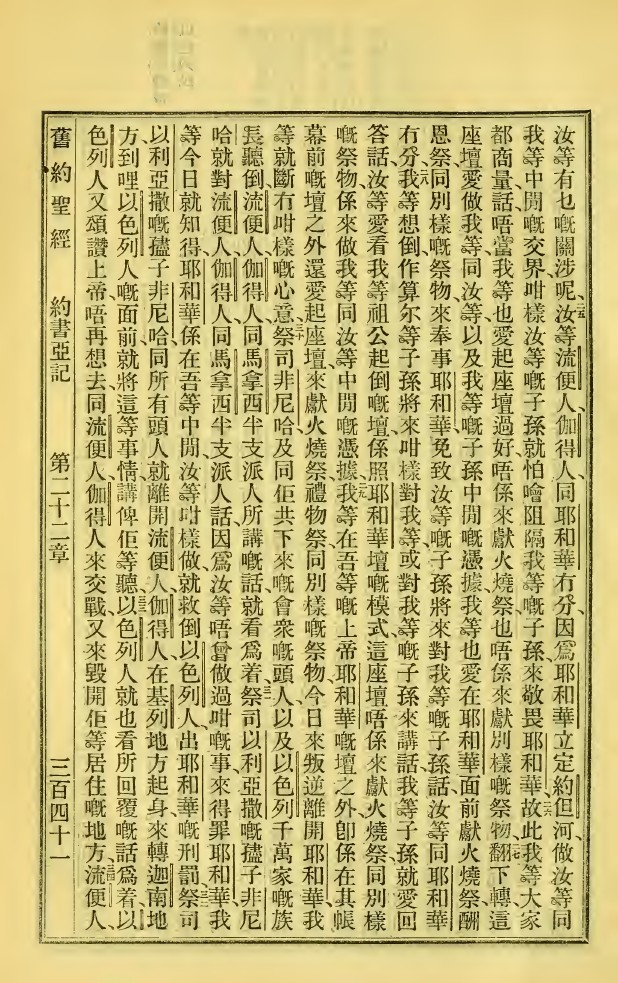 汝等有乜嘅關涉呢、汝等流便人、伽得人、同耶和華冇分、因爲耶和華立定約但河、做汝等同
我等中閒嘅交界、咁樣汝等嘅子孫就怕噲阻隔我等嘅子孫來敬畏耶和華、故此我等大家
都商量話、唔當我等也愛起座壇過好、唔係來獻火燒祭、也唔係來獻別樣嘅祭物、翻下轉這
座壇愛做我等、同汝等、以及我等嘅子孫中閒嘅憑據、我等也愛在耶和華面前獻火燒祭、酬
恩祭、同別樣嘅祭物、來奉事耶和華、免致汝等嘅子孫將來對我等嘅子孫話、汝等同耶和華
冇分、我等想倒、作算尔等子孫將來咁樣對我等、或對我等嘅子孫來講話、我等子孫就愛回
答話、汝等愛看我等祖公起倒嘅壇、係照耶和華壇嘅模式、這座壇唔係來獻火燒祭、同別樣
嘅祭物、係來做我等同汝等中閒嘅憑據、我等在吾等嘅上帝耶和華嘅壇之外、卽係在其帳
幕前嘅壇之外、還愛起座壇、來獻火燒祭、禮物祭、同別樣嘅祭物、今日來叛逆離開耶和華、我
等就斷冇咁樣嘅心意、祭司非尼哈、及同佢共下來嘅會衆嘅頭人、以及以色列千萬家嘅族
長、聽倒流便人、伽得人、同馬拿西半支派人所講嘅話、就看爲着、祭司以利亞撒嘅孻子非尼
哈、就對流便人、伽得人、同馬拿西半支派人話、因爲汝等唔曾做過咁嘅事來得罪耶和華、我
等今日就知得、耶和華係在吾等中閒、汝等咁樣做、就救倒以色列人、出耶和華嘅刑罰、祭司
以利亞撒嘅孻子非尼哈、同所有頭人、就離開流便人、伽得人、在基列地方起身、來轉迦南地
方、到哩以色列人嘅面前、就將這等事情、講俾佢等聽、以色列人就也看所回覆嘅話爲着、以
色列人又頌讚上帝、唔再想去同流便人、伽得人來交戰、又來毀開佢等居住嘅地方、流便人、
舊約聖經 約書亞記 第二十二章 三百四十一